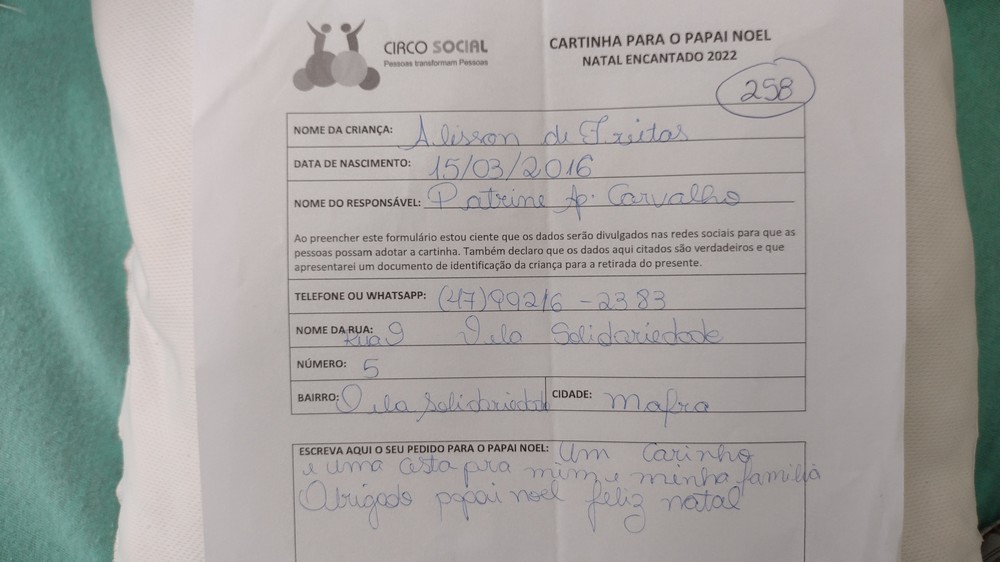 CIRCO SOCIAL
Pessoas transformam Pessoas
CARTINHA PARA O PAPAI NOEL
NATAL ENCANTADO 2022
258
NOME DA CRIANÇA: Alisson de Freitas
DATA DE NASCIMENTO: 15/03/2016
NOME DO RESPONSÁVEL: Patrine Ap. Carvalho
Ao preencher este formulário estou ciente que os dados serão divulgados nas redes sociais para que as
pessoas possam adotar a cartinha. Também declaro que os dados aqui citados são verdadeiros e que
apresentarei um documento de identificação da criança para a retirada do presente.
TELEFONE OU WHATSAPP: (47)99216-2383
NOME DA RUA: Rua 9 Vila Solidariedade
NÚMERO: 5
BAIRRO: Vila Solidariedade CIDADE: Mafra
ESCREVA AQUI O SEU PEDIDO PARA O PAPAI NOEL: Um Carinho
e uma cesta pra mim e minha familia
Obrigado papai noel feliz natal